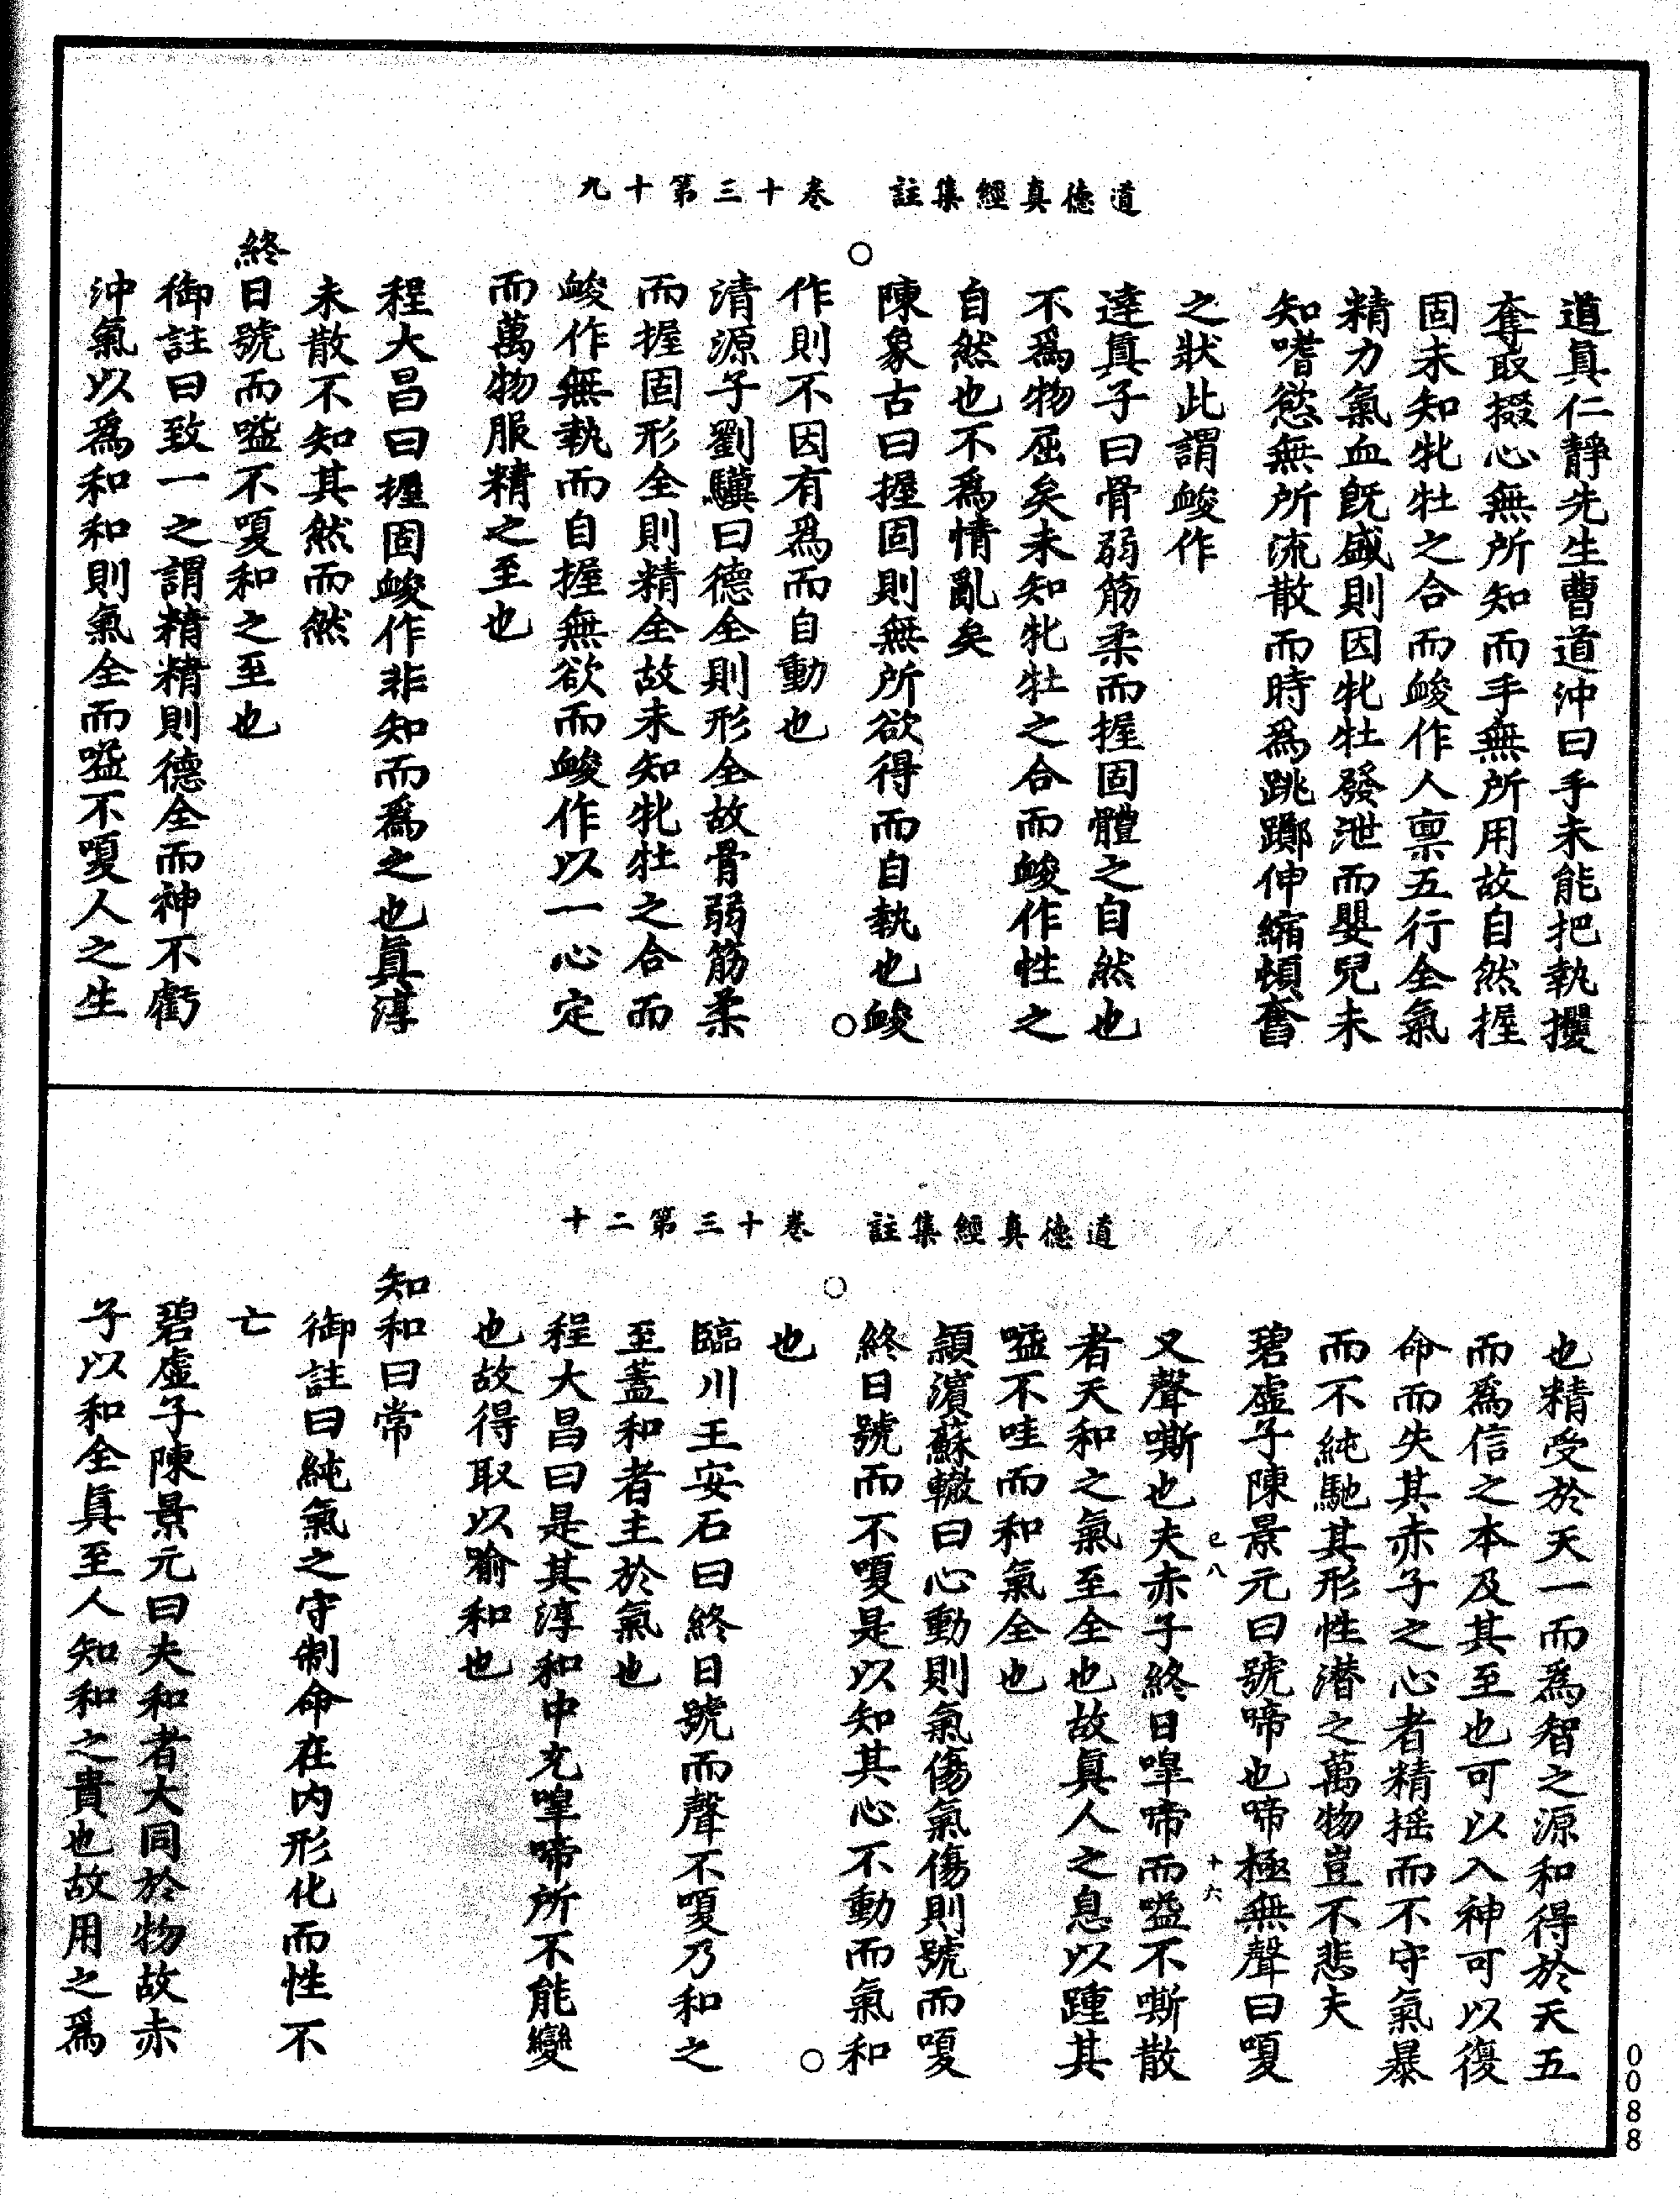 道德真經集註 卷十三第十九
道真仁靜先生曹道沖曰手未能把執攫
奪敢掇心無所知而手無所用故自然握
固未知牝牡之合而䘒作人禀五行全氣
精力氣血旣盛則因牝牡發泄而嬰兒未
知嗜慾無所流散而時爲跳躑伸縮頓奮
之狀此謂䘒作
達真子曰骨弱筋柔而握固體之自然也
不爲物屈矣未知牝牡之合而䘒作性之
自然也不爲情亂矣
陳象古曰握固則無所欲得而自執也䘒
作則不因有爲而自動也
清源子劉驥曰德全則形全故骨弱筋柔
而握固形全則精全故未知牝牡之合而
䘒作無執而自握無欲而䘒作以一心定
而萬物服精之至也
程大昌曰握固䘒作非知而爲之也真淳
未散不知其然而然
終日號而嗌不嗄和之至也
御註曰致一之謂精精則德全而神不虧
沖氣以爲和和則氣全而嗌不嗄人之生
道德真經集註 卷十三第二十
也精受於天一而爲智之源和得於天五
而爲信之本及其至也可以入神可以復
命而失其赤子之心者精摇而不守氣暴
而不純馳其形性潛之萬物豈不悲夫
碧虛子陳景元曰號啼也啼極無聲曰嗄
己八 十六
又聲嘶也夫赤子終日嘷啼而嗌不嘶散
者天和之氣至全也故真人之息以踵其
嗌不哇而和氣全也
頴濱蘇轍曰心動則氣傷氣傷則號而嗄
終日號而不嗄是以知其心不動而氣和
也
臨川王安石曰終日號而聲不嗄乃和之
至蓋和者主於氣也
程大昌曰是其淳和中充嘷啼所不能變
也故得取以喻和也
知和曰常
御註曰純氣之守制命在內形化而性不
亡
碧虛子陳景元曰夫和者大同於物故赤
子以和全真至人知和之貴也故用之爲
0088